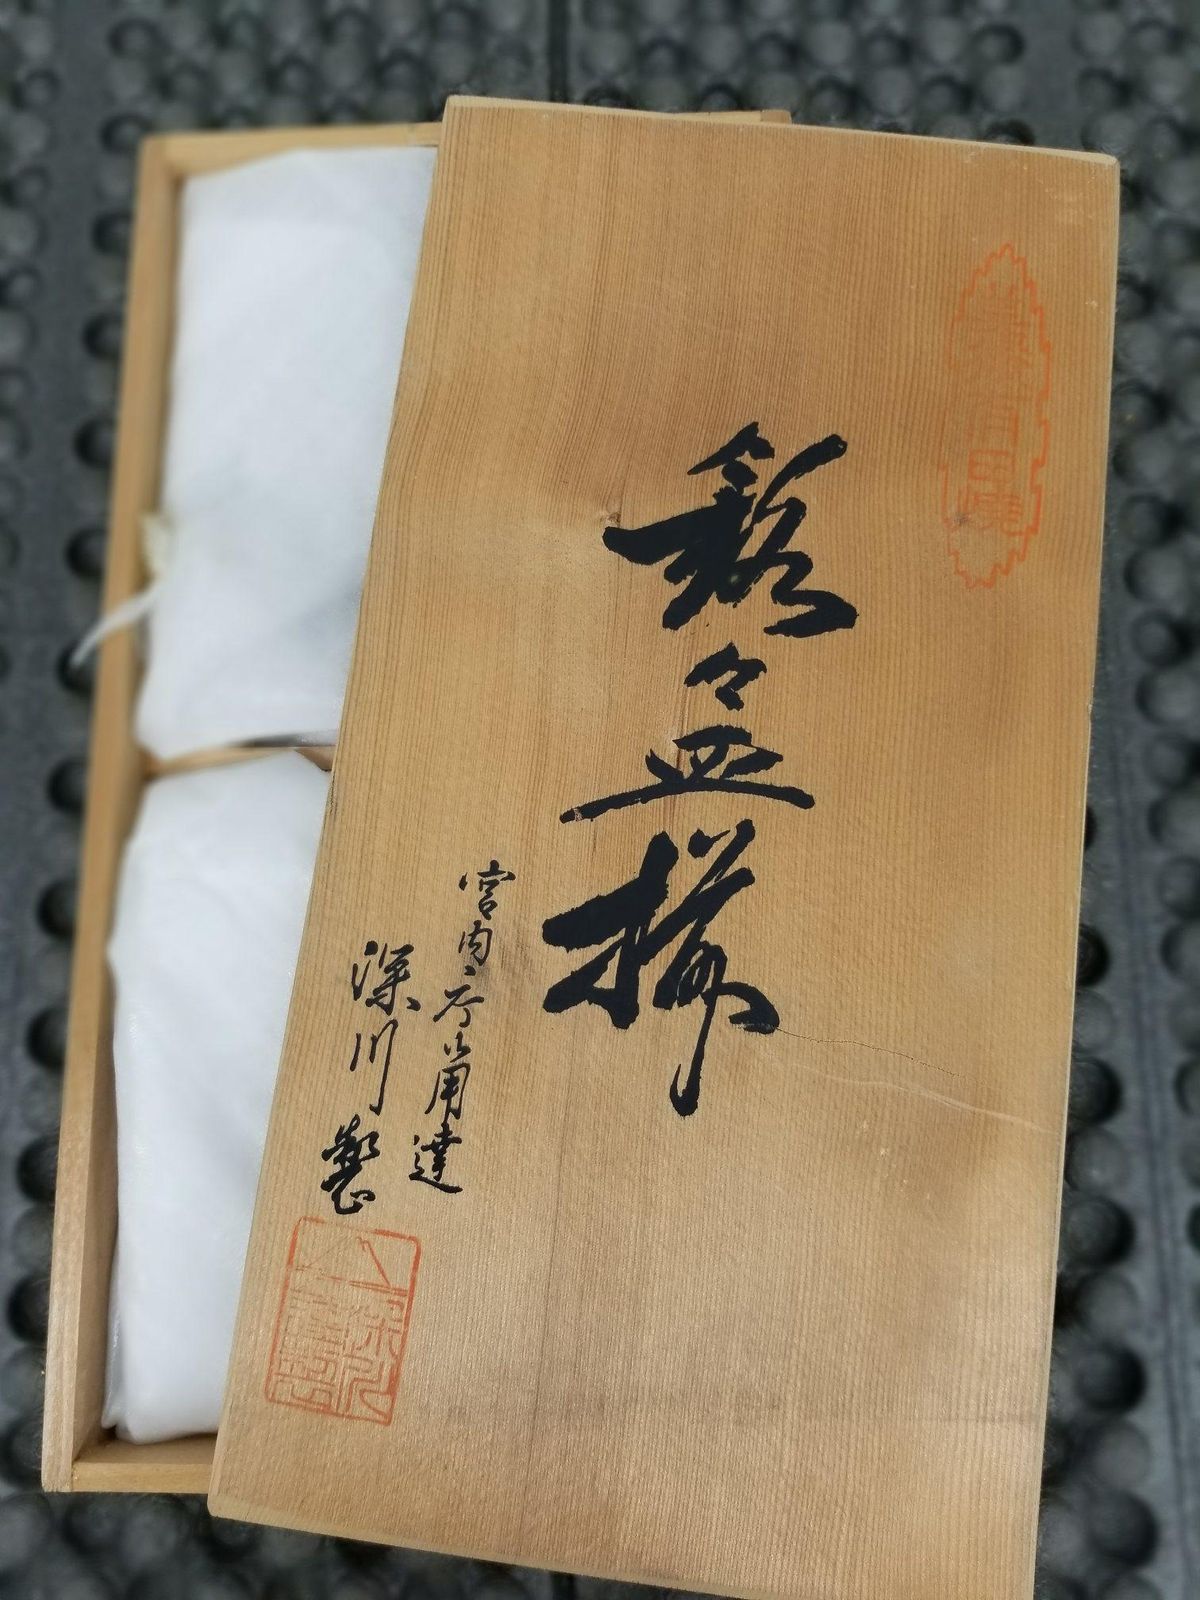 有田焼
銘々皿揃
宮内庁御用達
深川製